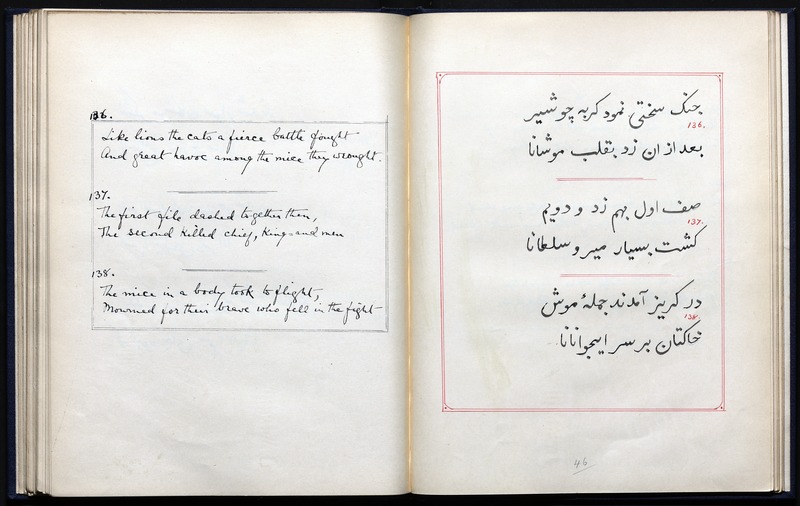 136.
Like lions the cats a fierce battle fought
And great havoc among the mice they wrought.
137.
The first file dashed together then,
The second killed chief, King-and men
138.
The mice in a body took to flight,
Mourned for their brave who fell in the fight
جنک سختی نمود کربه چو شیر
136.
بعد از ان زد بقلب موشانا
صف اول بهم زد و دویم
137.
کشت بسیار میر و سلطانا
در کریز آمدند جملهٔ موش
138.
خاکتان بر سر ایجوانانا
46